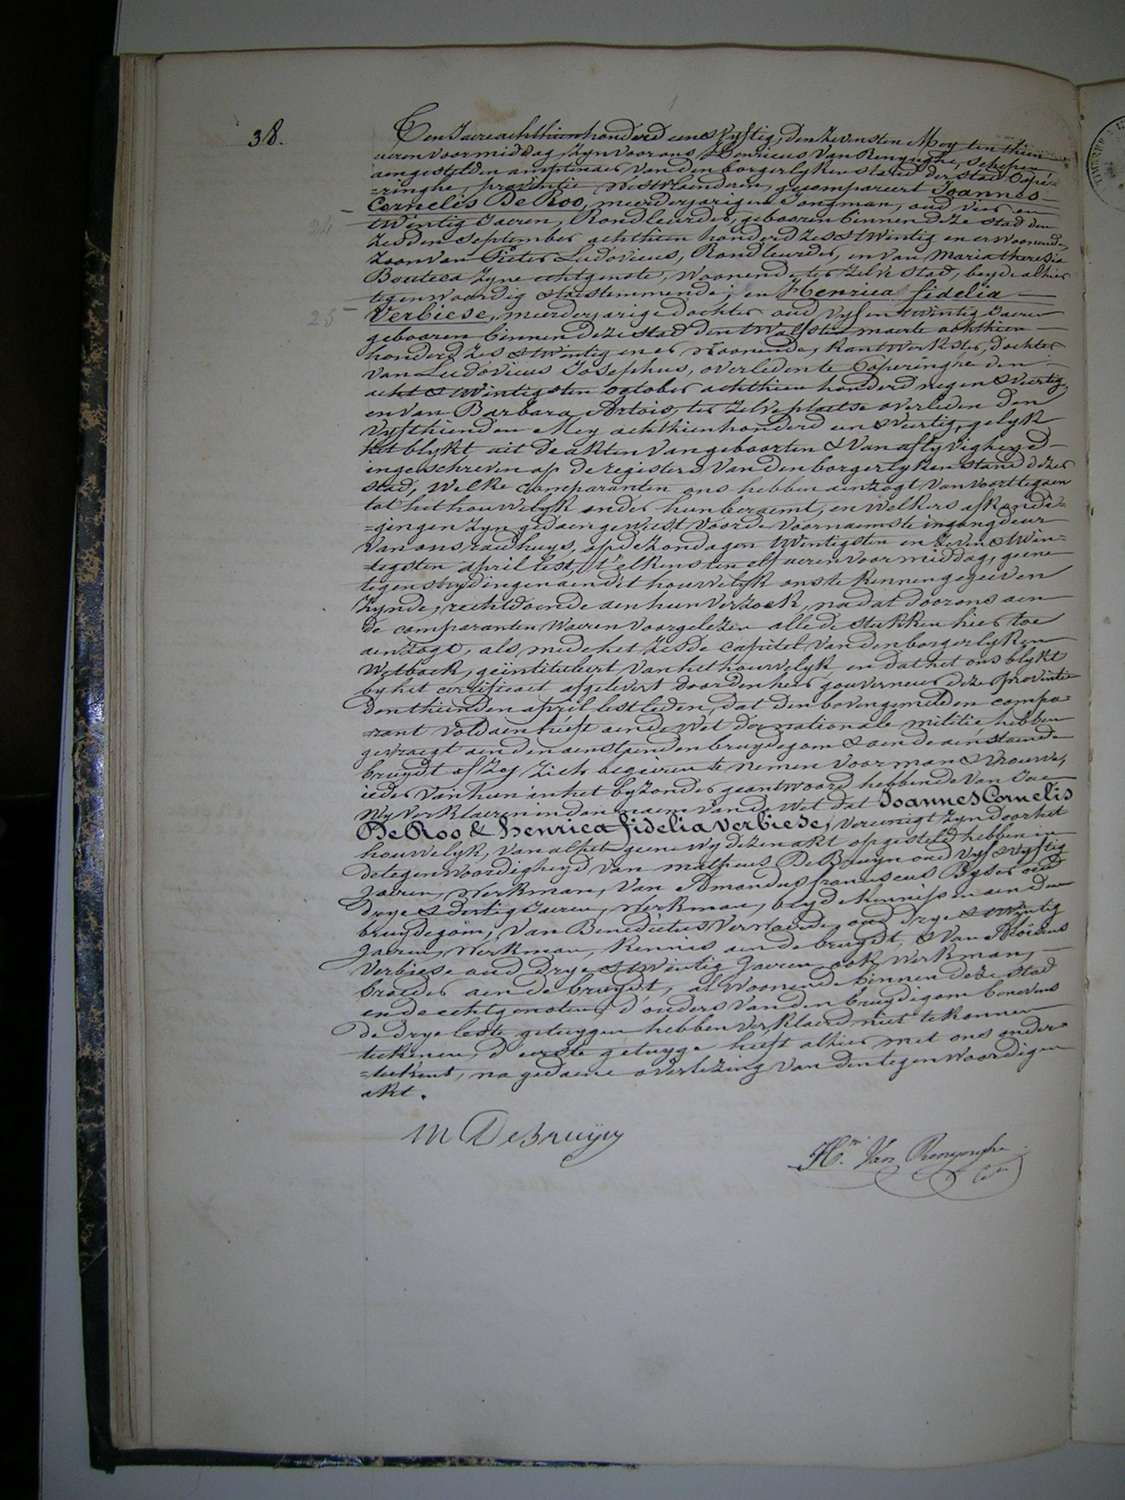 38.
Ten Jaere achthien honderd een & Vyftig, den zevensten Mey ten thien
ueren voormiddag, zyn voor ons Henricus Van Renynghe, schepen
aengestelden amptenaer van den borgerlyken stand der stad Pope-
=ringhe, provintie Westvlaenderen, gecompareert Joannes
Cornelis De Roo, meerderjarigen Jongman, oud vier en
24
twintig Jaeren, Rondleurder, gebooren binnen deze stad den
zesden September achthien honderd zes & twintig en er woonende,
zoon van Pieter Ludovicus, Rondleurder, en van Maria theresia
Bouteca zyne echtgenote, woonende ter zelve stad, beyde alhier
tegenwoordig & toestemmende; en Henrica fidelia
25
Verbiese, meerderjarige dochter oud vyf en twintig Jaeren
gebooren binnen deze stad den twaelfsten maerte achthien
honderd zes & twintig en er woonende, kantwerkster, dochter
van Ludovicus Josephus, overleden te Poperinghe den
acht & twintigsten october achthien honderd negen & veertig
en van Barbara Artois, ter zelve plaetse overleden den
vyfthienden Mey achthien honderd een & veertig, gelyk
het blykt uit de akten van geboorten & van aflyvigheyd
ingeschreven op de registers van den borgerlyken stand dezer
stad, welke comparanten ons hebben aenzogt van voorttegaen
tot het houwelyk onder hun beraemt, en welkers afkondi-
=gingen zyn gedaen geweest voor de voornaemste ingangdeur
van ons raedhuys, op de zondagen twintigsten en zeven & twin-
=tigsten april lest, t'elkens ten elf ueren voormiddag, geene
tegenstrydingen aen dit houwelyk ons te kennen gegeeven
zynde, rechtdoende aen hun verzoek, na dat door ons aen
de comparanten waeren voorgelezen alle de stukken hier toe
aenzogt, als mede het zesde capittel van den borgerlyken
Wetboek, geïntituleert van het houwelyk en dat het ons blykt
by het certificaet afgelevert door den heer gouverneur dezer provintie
den thienden april lestleden, dat den bovengemelden compa-
=rant voldaen heeft aen de wet der nationale militie, hebben
gevraegt aen den aenstaenden bruydegom & aen de aenstaende
bruydt of zy zich begeeren te nemen voor man & vrouwe,
ieder van hun in het byzonder geantwoord hebbende van Jae
Wy verklaeren in den naem van de wet dat Joannes Cornelis
De Roo & henrica fidelia verbiese, vereenigt zyn door het
houwelyk, van al het gene wy dezen akt opgesteld hebben in
de tegenwoordigheyd van matheus De Bruyn oud vyf & vyftig
Jaeren, werkman, van Amandus franciscus Byser oud
drye & dertig Jaeren, werkman, beyde kennissen aen den
bruydegom, van Benedictus oud drye & twintig
Jaeren, werkman, kennis aen de bruydt, & van Aloisius
Verbiese oud drye & twintig Jaeren ook werkman,
broeder aen de bruydt, al woonende binnen deze stad
en de echtgenoten, d'ouders van den bruydigom benevens
de drye leste getuygen hebben verklaerd niet te konnen
teekenen, d'eerste getuyge heeft alhier met ons onder-
=teekent, na gedaene overlezing van den tegenwoordigen
akt.
M DeBruyn
Hri. Van Renynghe